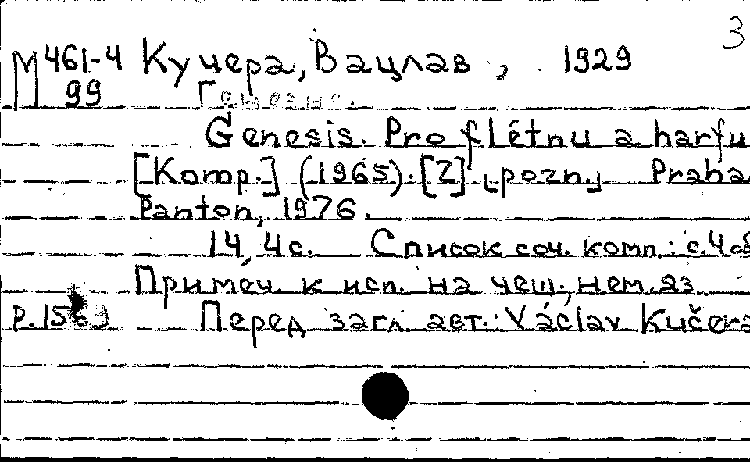 3
М 461-4 Кучера, Вацлав, 1929
99 Генезис.
Genesis. Pro flétnu a harfu
[Komp.] (1965). [Z] [pozn.] Praha
Panton, 1976.
14, 4 с. Список соч. комп.: с. 4 об
Примеч. к исп. на чеш., нем. яз.
Перед загл. авт.: Václav Kučera